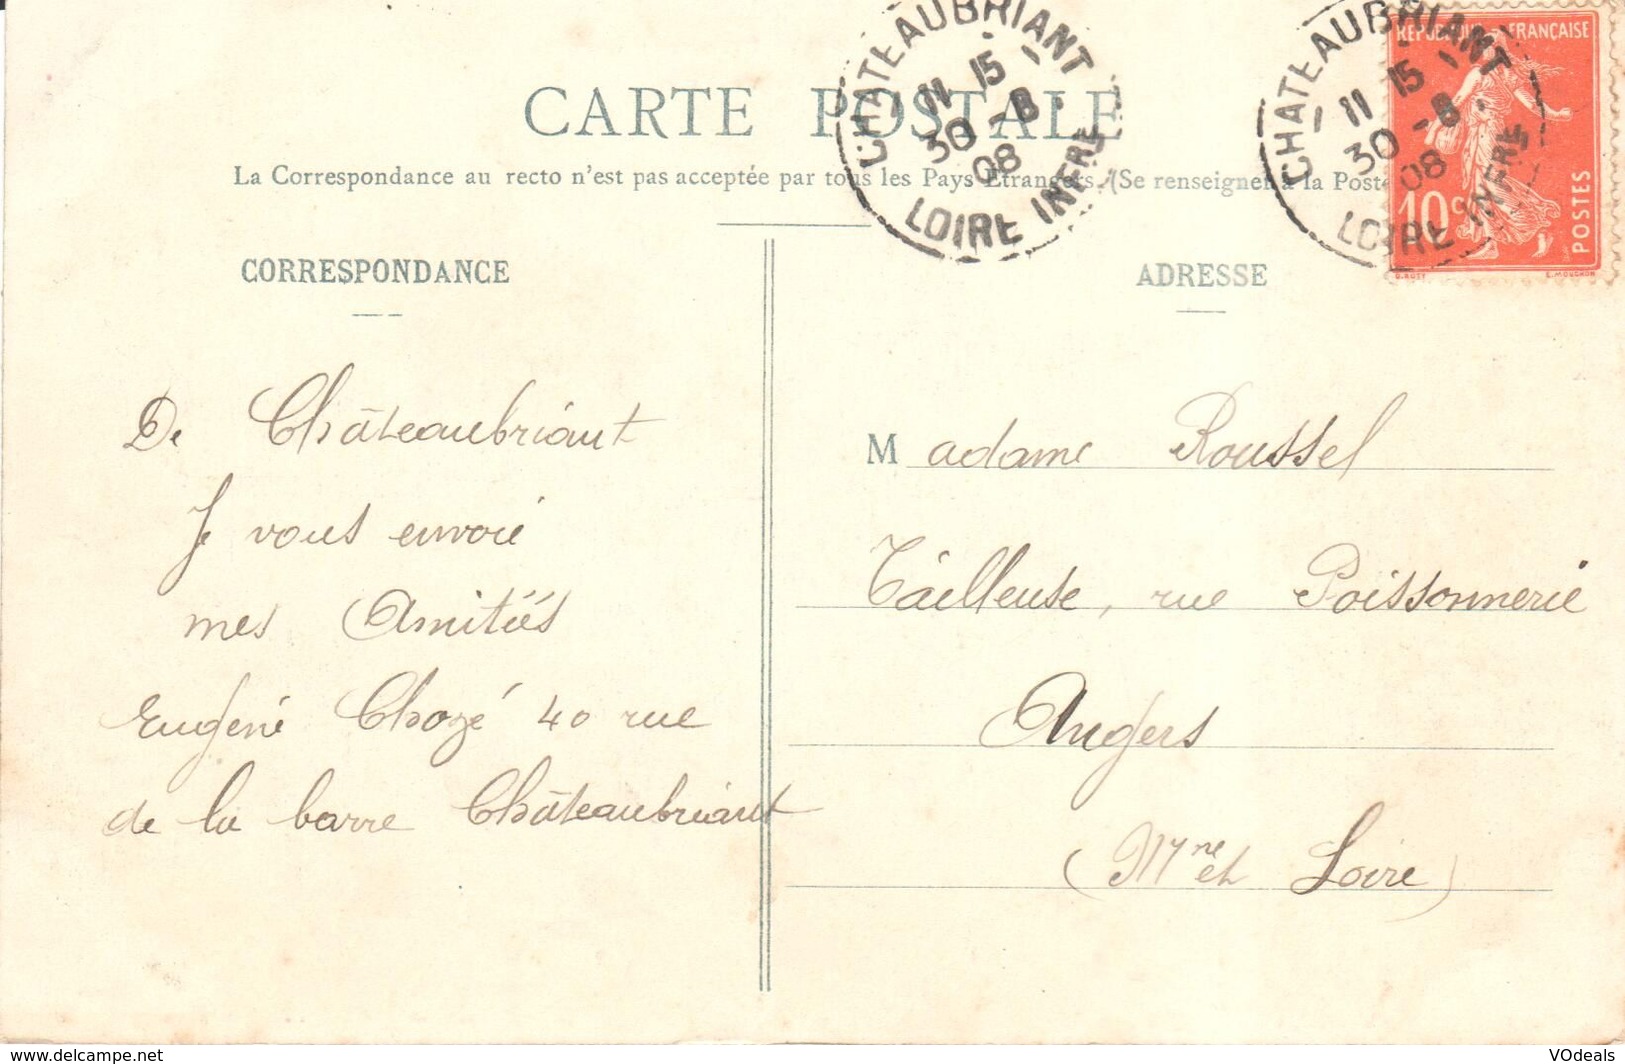 CARTE POSTALE
La Correspondance au recto n'est pas acceptée par tous les Pays Etrangers. (Se renseigner à la Poste
CHATEAUBRIANT
11 15
30 -8
08
LOIRE INFRE
CHATEAUBRIANT
11 15
30 -8
08
LOIRE INFRE
REPUBLIQUE FRANÇAISE
10c
POSTES
O. ROTY
E. MOUCHON
CORRESPONDANCE
De Châteaubriant
Je vous envoie
mes Amitiés
Eugène Chozé 40 rue
de la barre Châteaubriant
ADRESSE
Madame Roussel
Tailleuse, rue Poissonnerie
Angers
(Mne et Loire)
www.delcampe.net
VOdeals